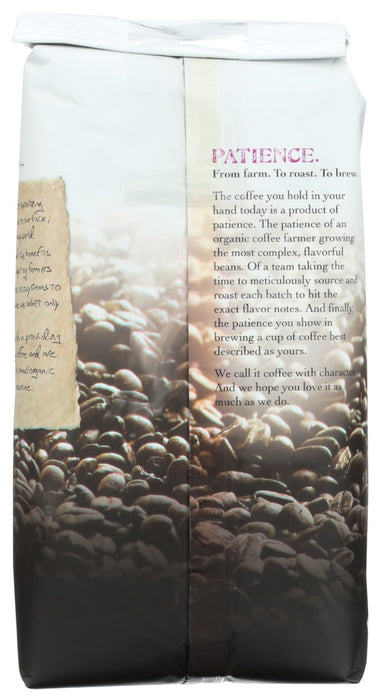 PATIENCE.
From farm. To roast. To brew.
The coffee you hold in your
hand today is a product of
patience. The patience of an
organic coffee farmer growing
the most complex, flavorful
beans. Of a team taking the
time to meticulously source and
roast each batch to hit the
exact flavor notes. And finally,
the patience you show in
brewing a cup of coffee best
described as yours.
We call it coffee with character.
And we hope you love it as
much as we do.
world
benefits
farmers
ecosystems to
we select only
providing
coffee and are
organic